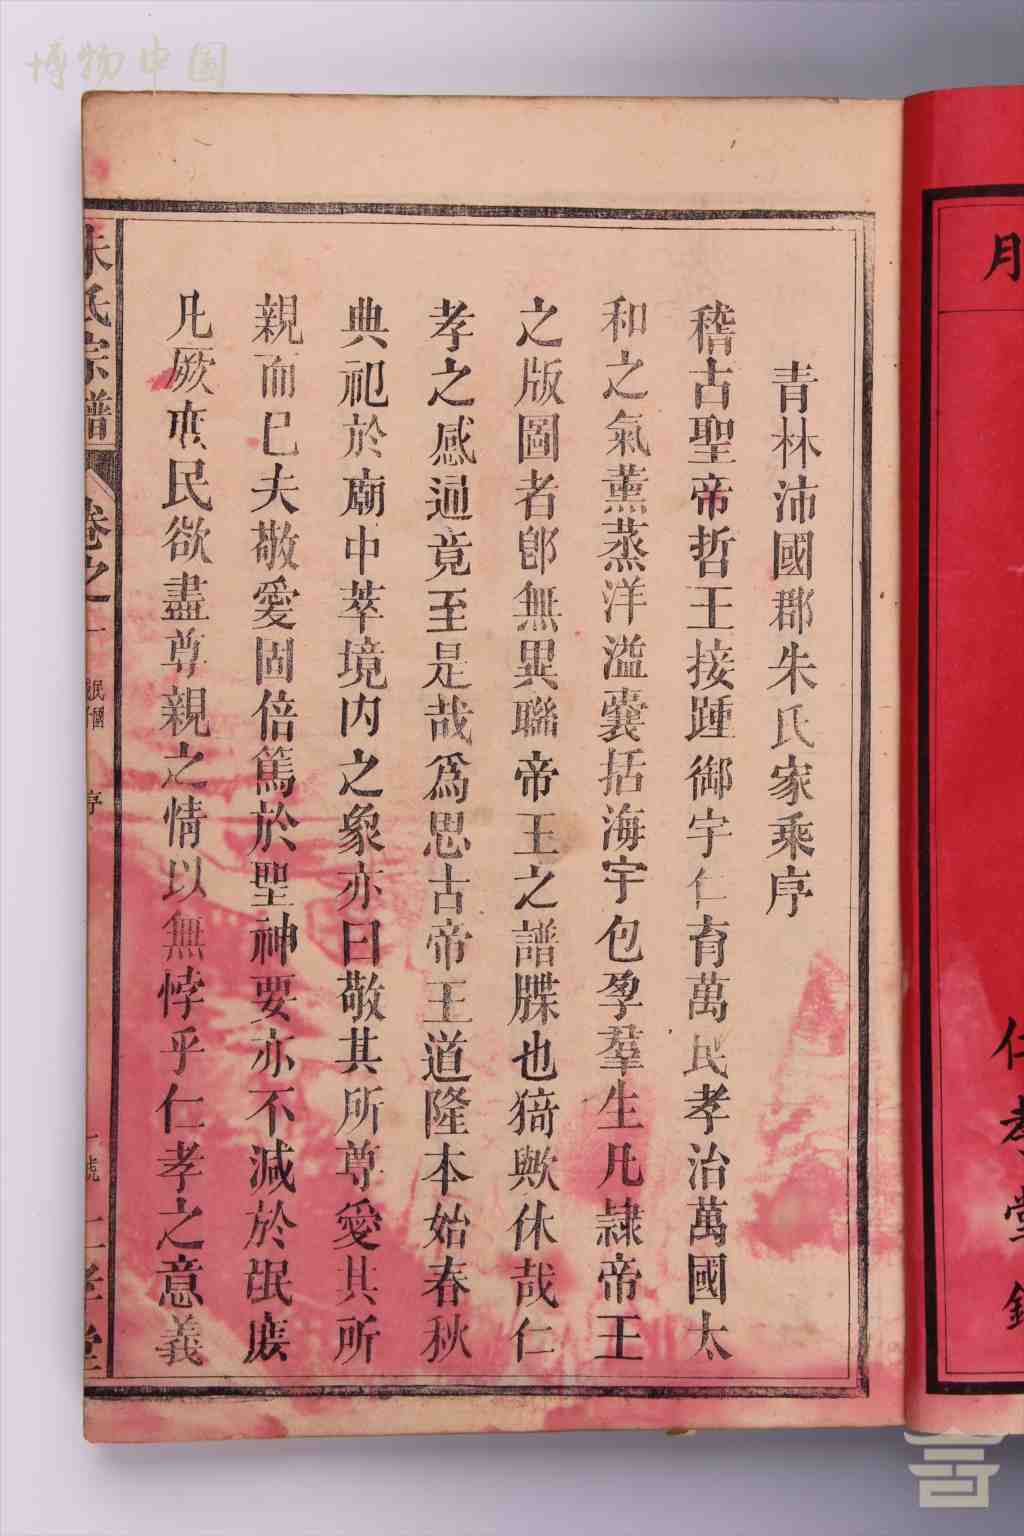 博物中国
月
仁孝堂
青林沛國郡朱氏家乘序
稽古聖帝哲王接踵御宇仁育萬民孝治萬國太
和之氣薰蒸洋溢囊括海宇包孕羣生凡隷帝王
之版圖者卽無異聯帝王之譜牒也猗歟休哉仁
孝之感通竟至是哉爲思古帝王道隆本始春秋
典祀於廟中萃境内之象亦曰敬其所尊愛其所
親而已夫敬愛固倍篤於聖神要亦不減於氓庻
凡厥庻民欲盡尊親之情以無悖乎仁孝之意義
朱氏宗譜
卷之一
序
一號
仁孝堂